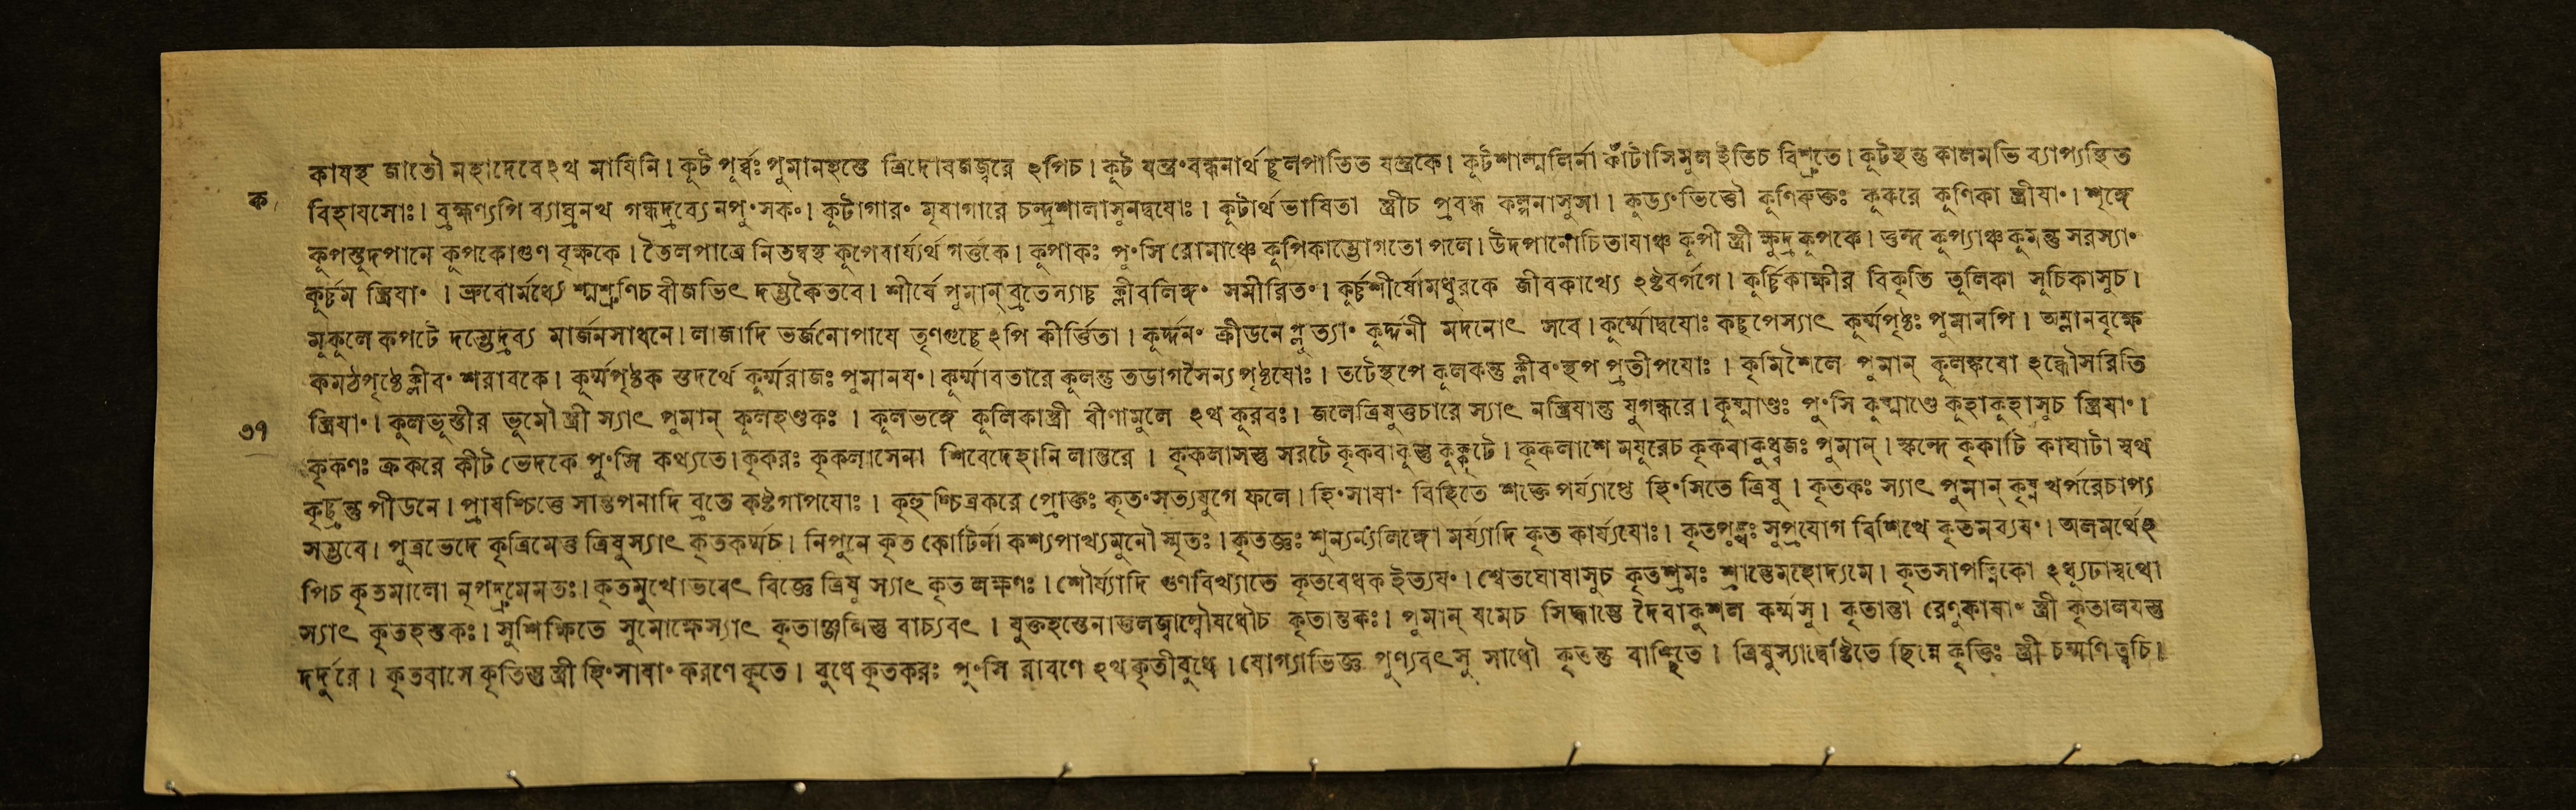 কাযস্থ জাতৌ মহাদেবেঽথ মাযিনি। কূট পূর্ব্বঃ পুমানহস্তে ত্রিদোষজজ্বরে ঽপিচ। কূট যন্ত্রং বন্ধনার্থ ছলপাতিত যন্ত্রকে। কূটশাল্মলির্না কাঁটাসিমুল ইতিচ বিশ্রুতে। কূটস্থন্তু কালমভি ব্যাপ্যস্থিত
ক
বিহাযসোঃ। ব্রহ্মণ্যপি ব্যাঘ্রনখ গন্ধদ্রব্যে নপুংসকং। কূটাগারং মৃষাগারে চন্দ্রশালাসুনদ্বযোঃ। কূটার্থ ভাষিতা স্ত্রীচ প্রবন্ধ কল্পনাসুসা। কুড্যংভিত্তৌ কূণিরুক্তঃ কূকরে কূণিকা স্ত্রীযাং। শৃঙ্গে
কূপস্তুদপানে কূপকোগুণ বৃক্ষকে। তৈলপাত্রে নিতম্বস্থ কূপেবার্য্যর্থ গর্ত্তকে। কূপাকঃ পুংসি রোমাঞ্চে কূপিকাম্ভোগতো পলে। উদপানোচিতাযাঞ্চ কূপী স্ত্রী ক্ষুদ্রকূপকে। তুন্দ কূপ্যাঞ্চ কূমন্তু সরস্যাং
কূর্চ্চম স্ত্রিযাং । ভ্রুবোর্মধ্যে শ্মশ্রুণিচ বীজভিৎ দম্ভকৈতবে। শীর্ষে পুমান্ ব্রতেস্যাচ্চ ক্লীবলিঙ্গং সমীরিতং। কূর্চ্চশীর্ষোমধুরকে জীবকাখ্যে ঽষ্টবর্গগে। কূর্চ্চিকাক্ষীর বিকৃতি তূলিকা সূচিকাসুচ।
মুকুলে কপটে দম্ভেদ্রব্য মার্জনসাধনে। লাজাদি ভর্জনোপাযে তৃণগুচ্ছেঽপি কীর্ত্তিতা। কূর্দ্দনং ক্রীডনে প্লুত্যাং কূর্দ্দনী মদনোৎ সবে। কুর্ম্মোদ্বযোঃ কচ্ছপেস্যাৎ কূর্ম্মপৃষ্ঠঃ পুমানপি। অম্লানবৃক্ষে
কমঠপৃষ্ঠে ক্লীবং শরাবকে। কূর্ম্মপৃষ্ঠক স্তদর্থে কূর্ম্মরাজঃ পুমানযং। কূর্ম্মাবতারে কূলন্তু তডাগসৈন্যপৃষ্ঠযোঃ। তটেস্থপে কূলকন্তু ক্লীবংস্থপ প্রতীপযোঃ। কৃমিশৈলে পুমান্ কূলঙ্কষো ঽব্ধৌসরিতি
৩৭
স্ত্রিযাং। কূলভূস্তীর ভূমৌ স্ত্রী স্যাৎ পুমান্ কূলহণ্ডকঃ । কূলভঙ্গে কূলিকাস্ত্রী বীণামূলে ঽথ কূরবঃ। জলেত্রিষুত্তচারে স্যাৎ নস্ত্রিযান্তু যুগন্ধরে। কূষ্মাণ্ডঃ পুংসি কুষ্মাণ্ডে কূহাকুহাসুচ স্ত্রিযাং।
কৃকণঃ ক্রকরে কীট ভেদকে পুংসি কথ্যতে। কৃকরঃ কৃকলাসেনা শিবেদেহানি লান্তরে । কৃকলাসস্তু সরটে কৃকবাকুস্তু কুক্কুটে। কৃকলাশে মযূরেচ কৃকবাকুধ্বজঃ পুমান্। স্কন্দে কৃকাটি কাঘাটা স্বথ
কৃচ্ছ্রন্তু পীডনে। প্রাযশ্চিত্তে সান্তপনাদি ব্রতে কষ্টগাপযোঃ। কৃন্তুশ্চিত্রকরে প্রোক্তঃ কৃতংসত্যযুগে ফলে। হিংসাযাং বিহিতে শক্তে পর্য্যাপ্তে হিংসিতে ত্রিষু। কৃতকঃ স্যাৎ পুমান্ কৃষ্ণ খর্পরেচাপ্য
সম্ভবে। পুত্রভেদে কৃত্রিমেতু ত্রিষুস্যাৎ কৃতকর্ম্মচ। নিপুনে কৃত কোটির্না কশ্যপাখ্যমুনৌ স্মৃতঃ। কৃতজ্ঞঃ শুন্যন্যলিঙ্গো মর্য্যাদি কৃত কার্য্যযোঃ। কৃতপুঙ্খঃ সুপ্রযোগ বিশিখে কৃতমব্যযং। অলমর্থেঽ
পিচ কৃতমালো নৃপদ্রুমেমতঃ। কৃতমুখো ভবেৎ বিজ্ঞে ত্রিষু স্যাৎ কৃত লক্ষণঃ। শৌর্য্যাদি গুণবিখ্যাতে কৃতবেধক ইত্যযং। শ্বেতঘোষাসুচ কৃতশ্রমঃ শ্রান্তেমহোদ্যমে। কৃতসাপত্নিকো ঽধ্যূঢাস্বথো
স্যাৎ কৃতহস্তকঃ। সুশিক্ষিতে সুমোক্ষেস্যাৎ কৃতাঞ্জলিস্তু বাচ্যবৎ । যুক্তহস্তেনাত্তলজ্জালৌষধৌচ কৃতান্তকঃ। পুমান্ যমেচ সিদ্ধান্তে দৈবাকুশল কর্ম্মসু। কৃতান্তা রেণুকাযাং স্ত্রী কৃতালযস্তু
দর্দুরে। কৃতবাসে কৃতিস্তু স্ত্রী হিংসাযাং করণে কৃতে। বুধে কৃতকরঃ পুংসি রাবণে ঽথ কৃতীবুধে। যোগ্যাভিজ্ঞ পুণ্যবৎসু সাধৌ কৃত্তন্তু বাঞ্ছিতে। ত্রিষুস্যাদ্বেষ্টিতে ছিন্নে কৃত্তিঃ স্ত্রী চম্মণি ত্বচি।